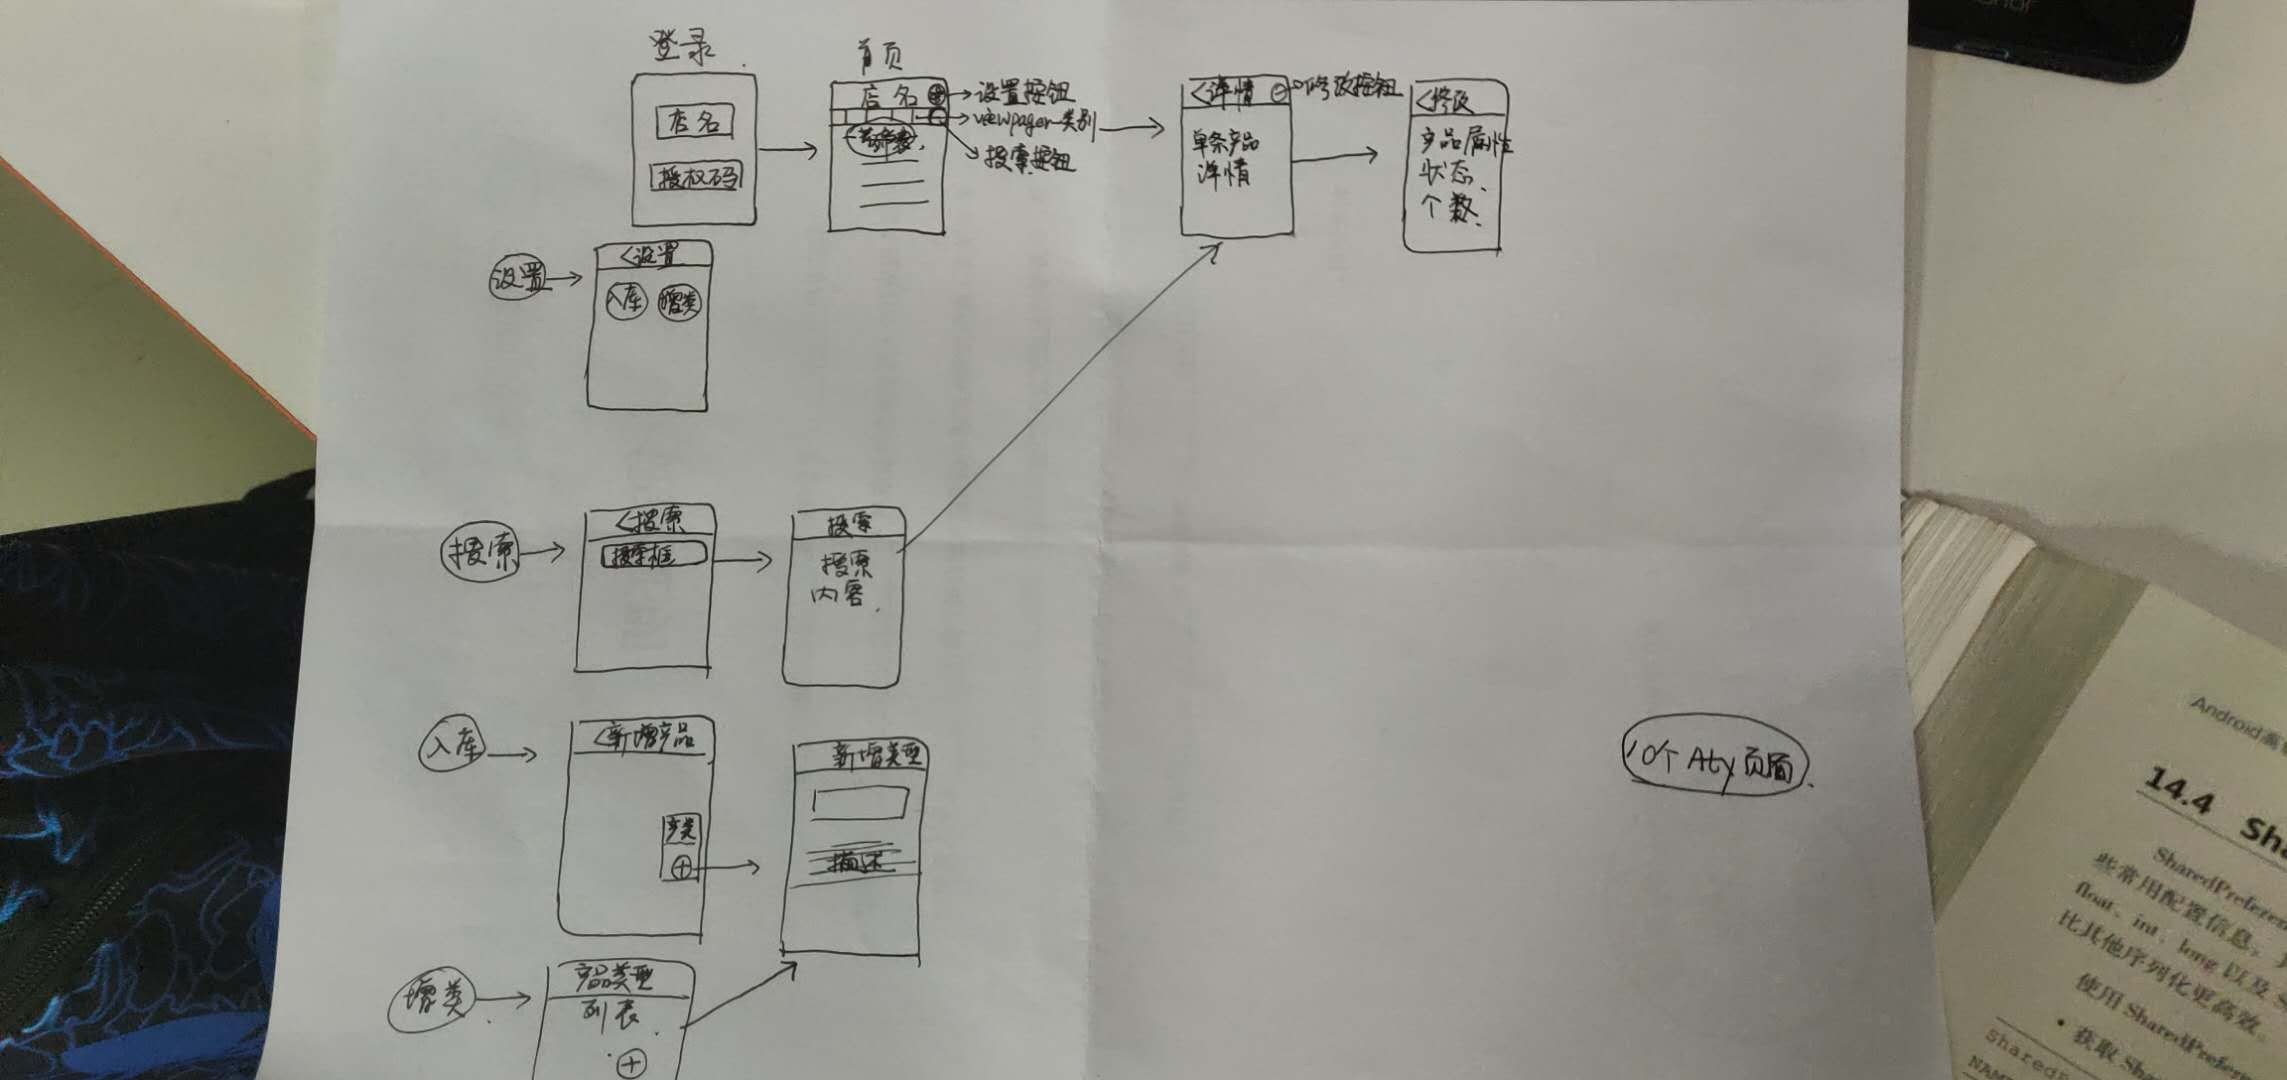 登录
首页
店名
授权码
店名
设置按钮
viewpager类别
搜索按钮
<详情
修改按钮
单条产品
详情
<修改
产品属性
状态、
个数
设置
<设置
入库
增类
搜索
<搜索
搜索框
搜索
搜索
内容
入库
<新增产品
产类
新增类型
描述
增类
产品类型
列表
10个Aty页面
Android高
14.4 Sha
SharedPreferen
些常用配置信息，
float、int、long 以及 S
比其他序列化更高效。
使用 SharedPrefer
• 获取 Sha
SharedP
NAM